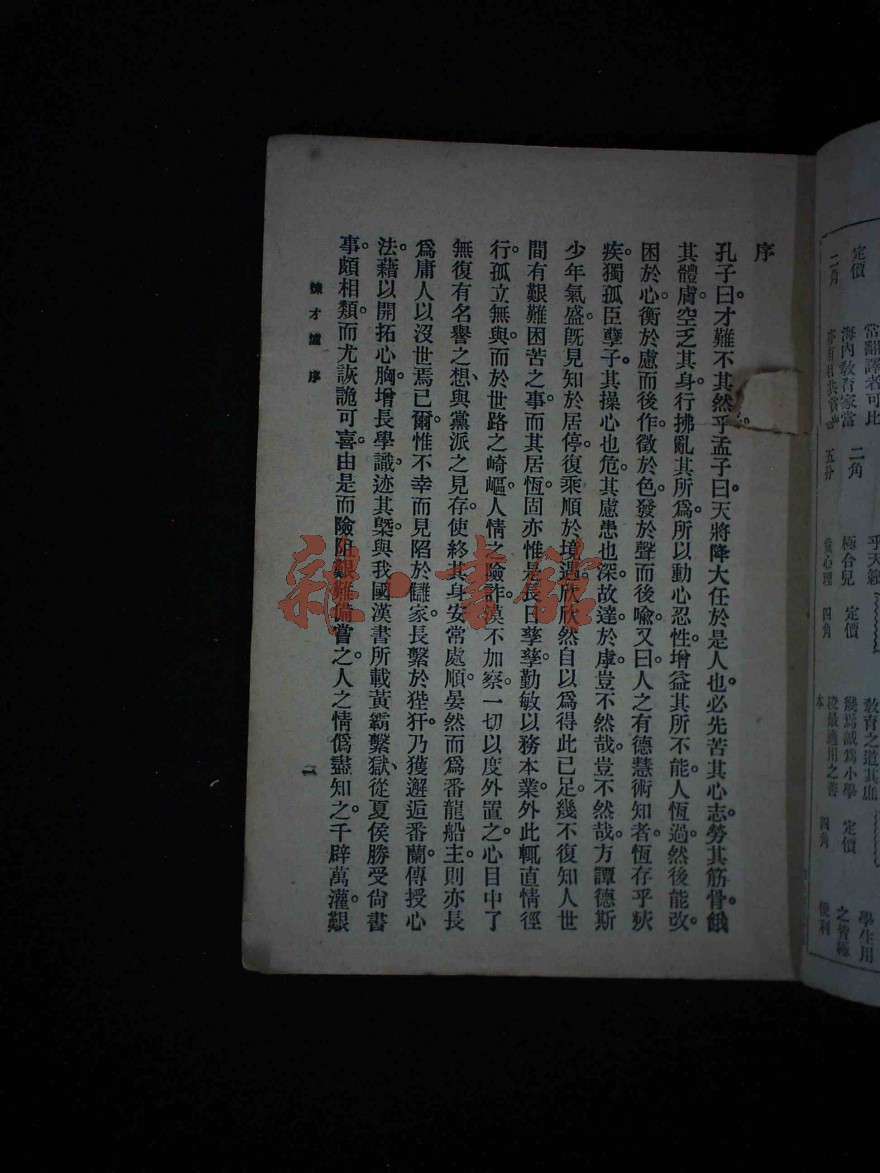 序
孔子曰。才難不其然乎。孟子曰。天將降大任於是人也。必先苦其心志。勞其筋骨。餓
其體膚。空乏其身。行拂亂其所爲。所以動心忍性。增益其所不能。人恆過。然後能改。
困於心。衡於慮。而後作。徵於色。發於聲。而後喩。又曰。人之有德慧術知者。恆存乎疢
疾。獨孤臣孽子。其操心也危。其慮患也深。故達。於虖。豈不然哉。豈不然哉。方譚德斯
少年氣盛。旣見知於居停。復乘順於境遇。欣欣然自以爲得此已足。幾不復知人世
間有艱難困苦之事。而其居恆。固亦惟是長日孳孳。勤敏以務本業。外此輒直情徑
行。孤立無與。而於世路之崎嶇。人情之險詐。漠不加察。一切以度外置之。心目中了
無復有名譽之想、與黨派之見存。使終其身安常處順。晏然而爲番龍船主。則亦長
爲庸人以沒世焉已爾。惟不幸而見陷於讎家。長繫於狴犴。乃獲邂逅番蘭。傳授心
法。藉以開拓心胸。增長學識。迹其槩。與我國漢書所載黃霸繫獄、從夏侯勝受尙書
事。頗相類。而尤詼詭可喜。由是而險阻艱難備嘗之。人之情僞盡知之。千辟萬灌。艱
煉才爐 序
一
雜·書館
定價
二角
常翻譯者可比
海內敎育家當
二角
五分
極合兒
童心理
定價
四角
敎育之道其庶
幾焉誠爲小學
校最適用之善
本
定價
四角
學生用
之皆極
便利